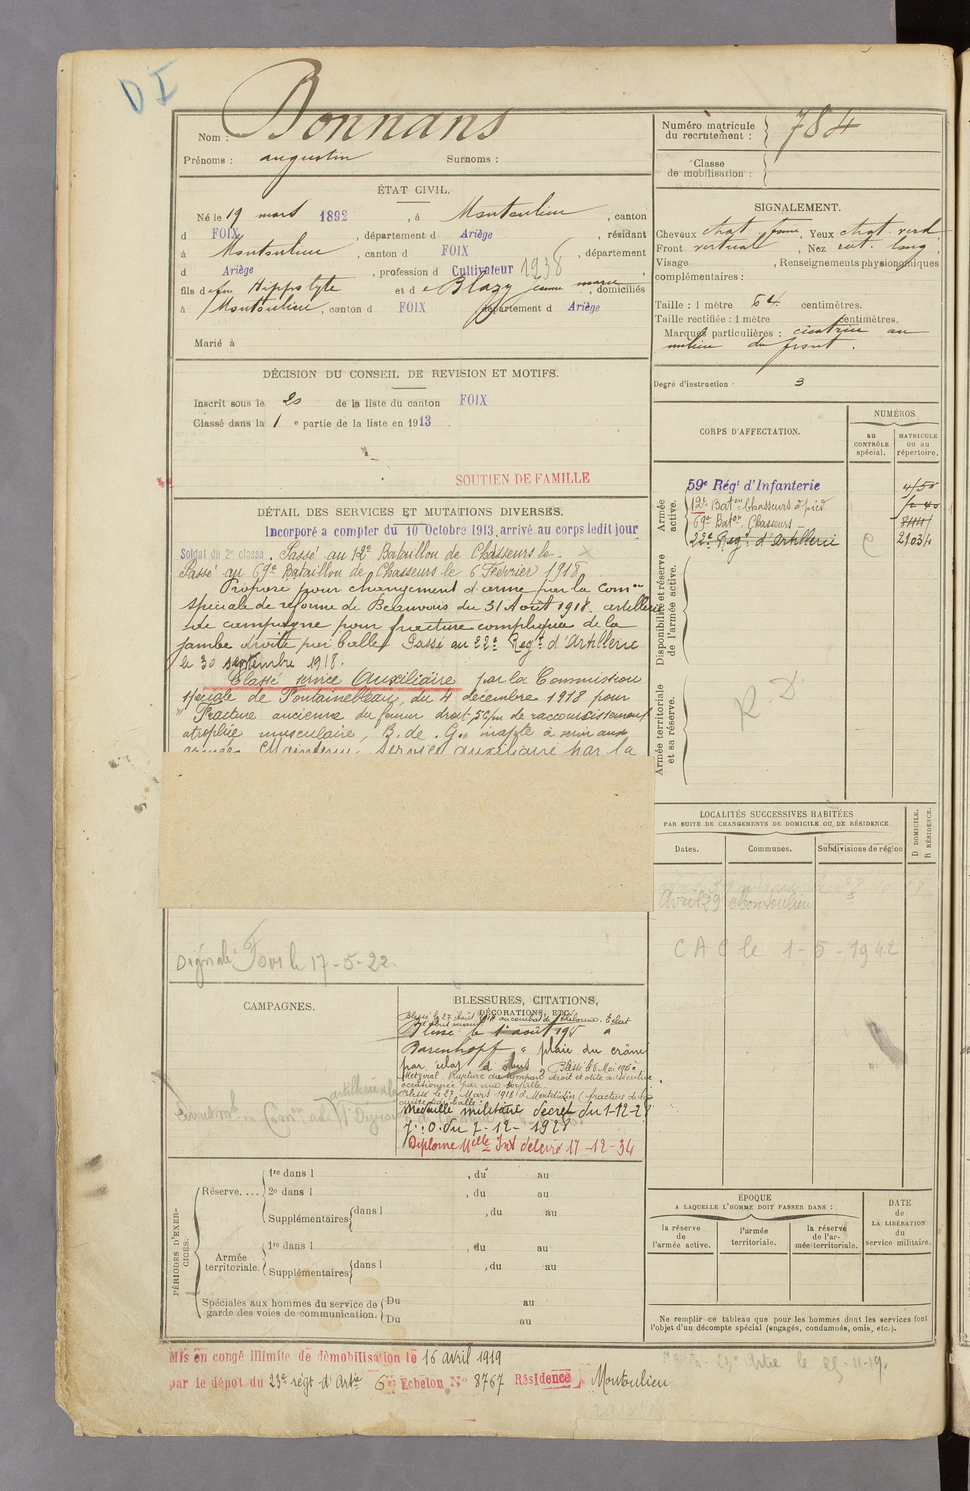 D I
Nom : Bonnans
Prénoms : augustin Surnoms :
Numéro matricule du recrutement : 784
Classe de mobilisation :
ÉTAT CIVIL.
Né le 19 mars 1892, à Montoulieu, canton
d FOIX, département d Ariège, résidant
à Montoulieu, canton d FOIX, département
d Ariège, profession d Cultivateur 1938
fils d feu Hippolyte et d e Blazy Jeanne marie, domiciliés
à Montoulieu, canton d FOIX département d Ariège
Marié à
SIGNALEMENT.
Cheveux chat. foncé. Yeux chat. verd
Front vertical, Nez rect. long
Visage , Renseignements physionomiques
complémentaires :
Taille : 1 mètre 64 centimètres.
Taille rectifiée : 1 mètre centimètres.
Marques particulières : cicatrice au
milieu du front.
Degré d'instruction : 3
DÉCISION DU CONSEIL DE REVISION ET MOTIFS.
Inscrit sous le 20 de la liste du canton FOIX
Classé dans la 1 e partie de la liste en 1913.
SOUTIEN DE FAMILLE
CORPS D'AFFECTATION.
NUMÉROS
au CONTRÔLE spécial.
MATRICULE ou au répertoire.
Armée active.
59e Régt d'Infanterie
12e Baton Chasseurs à pied
69e Baton Chasseurs
22e Regt d'Artillerie 21034
Disponibilité et réserve de l'armée active.
Armée territoriale et sa réserve.
R D
DÉTAIL DES SERVICES ET MUTATIONS DIVERSES.
Incorporé a compter du 10 Octobre 1913, arrivé au corps ledit jour
Soldat de 2e classe. Passé au 12e Bataillon de Chasseurs le
Passé au 69e Bataillon de Chasseurs le 6 Fevrier 1918
Proposé pour changement d'arme par la Comon
spéciale de réforme de Beauvais du 31 Août 1918. artillerie
de campagne pour fracture compliquée de la
jambe droite par balle. Passé au 22e Regt d'Artillerie
le 30 septembre 1918.
Classé service Auxiliaire par la Commission
spéciale de Fontainebleau, du 4 décembre 1918 pour
"Fracture ancienne du femur droit, 5c/m de raccourcissement
atrophie musculaire, B. de. G. inapte à servir aux
armées Maintenu service auxiliaire par la
LOCALITÉS SUCCESSIVES HABITÉES
PAR SUITE DE CHANGEMENTS DE DOMICILE OU DE RÉSIDENCE.
Dates. Communes. Subdivisions de région
D DOMICILE. R RÉSIDENCE.
Avril 29 Montoulieu
CAC le 1-5-1942
Foix le 17-5-22
CAMPAGNES.
BLESSURES, CITATIONS,
DÉCORATIONS, ETC.
Blessé le 27 Août 1914 au combat de
Blessé le 1er août 1915 à
Barenkopf " plaie du crâne
par éclat d'obus Blessé le 6 Mai 1915 à
Metzeral Rupture du tympan droit et otite
occasionnée par une torpille
Blessé le 27 Mars 1918 à Montdidier (fracture de la
cuisse par balle.
Médaille militaire décret du 1-12-28
J. : O. du 7-12-1928
Diplome Mlle Int délivré 17-12-34
PÉRIODES D'EXERCICES.
Réserve....
1re dans l , du au
2e dans l , du au
Supplémentaires dans l , du au
Armée territoriale.
1re dans l , du au
Supplémentaires dans l , du au
Spéciales aux hommes du service de garde des voies de communication.
Du au
Du au
ÉPOQUE
A LAQUELLE L'HOMME DOIT PASSER DANS :
la réserve de l'armée active.
l'armée territoriale.
la réserve de l'armée territoriale.
DATE de LA LIBÉRATION du service militaire.
Ne remplir ce tableau que pour les hommes dont les services font
l'objet d'un décompte spécial (engagés, condamnés, omis, etc.).
Mis en congé illimité de démobilisation le 16 avril 1919
par le dépôt du 23e régt d'Arte 6e Echelon No 8767 Résidence Montoulieu
23e Artie le 25-11-19.